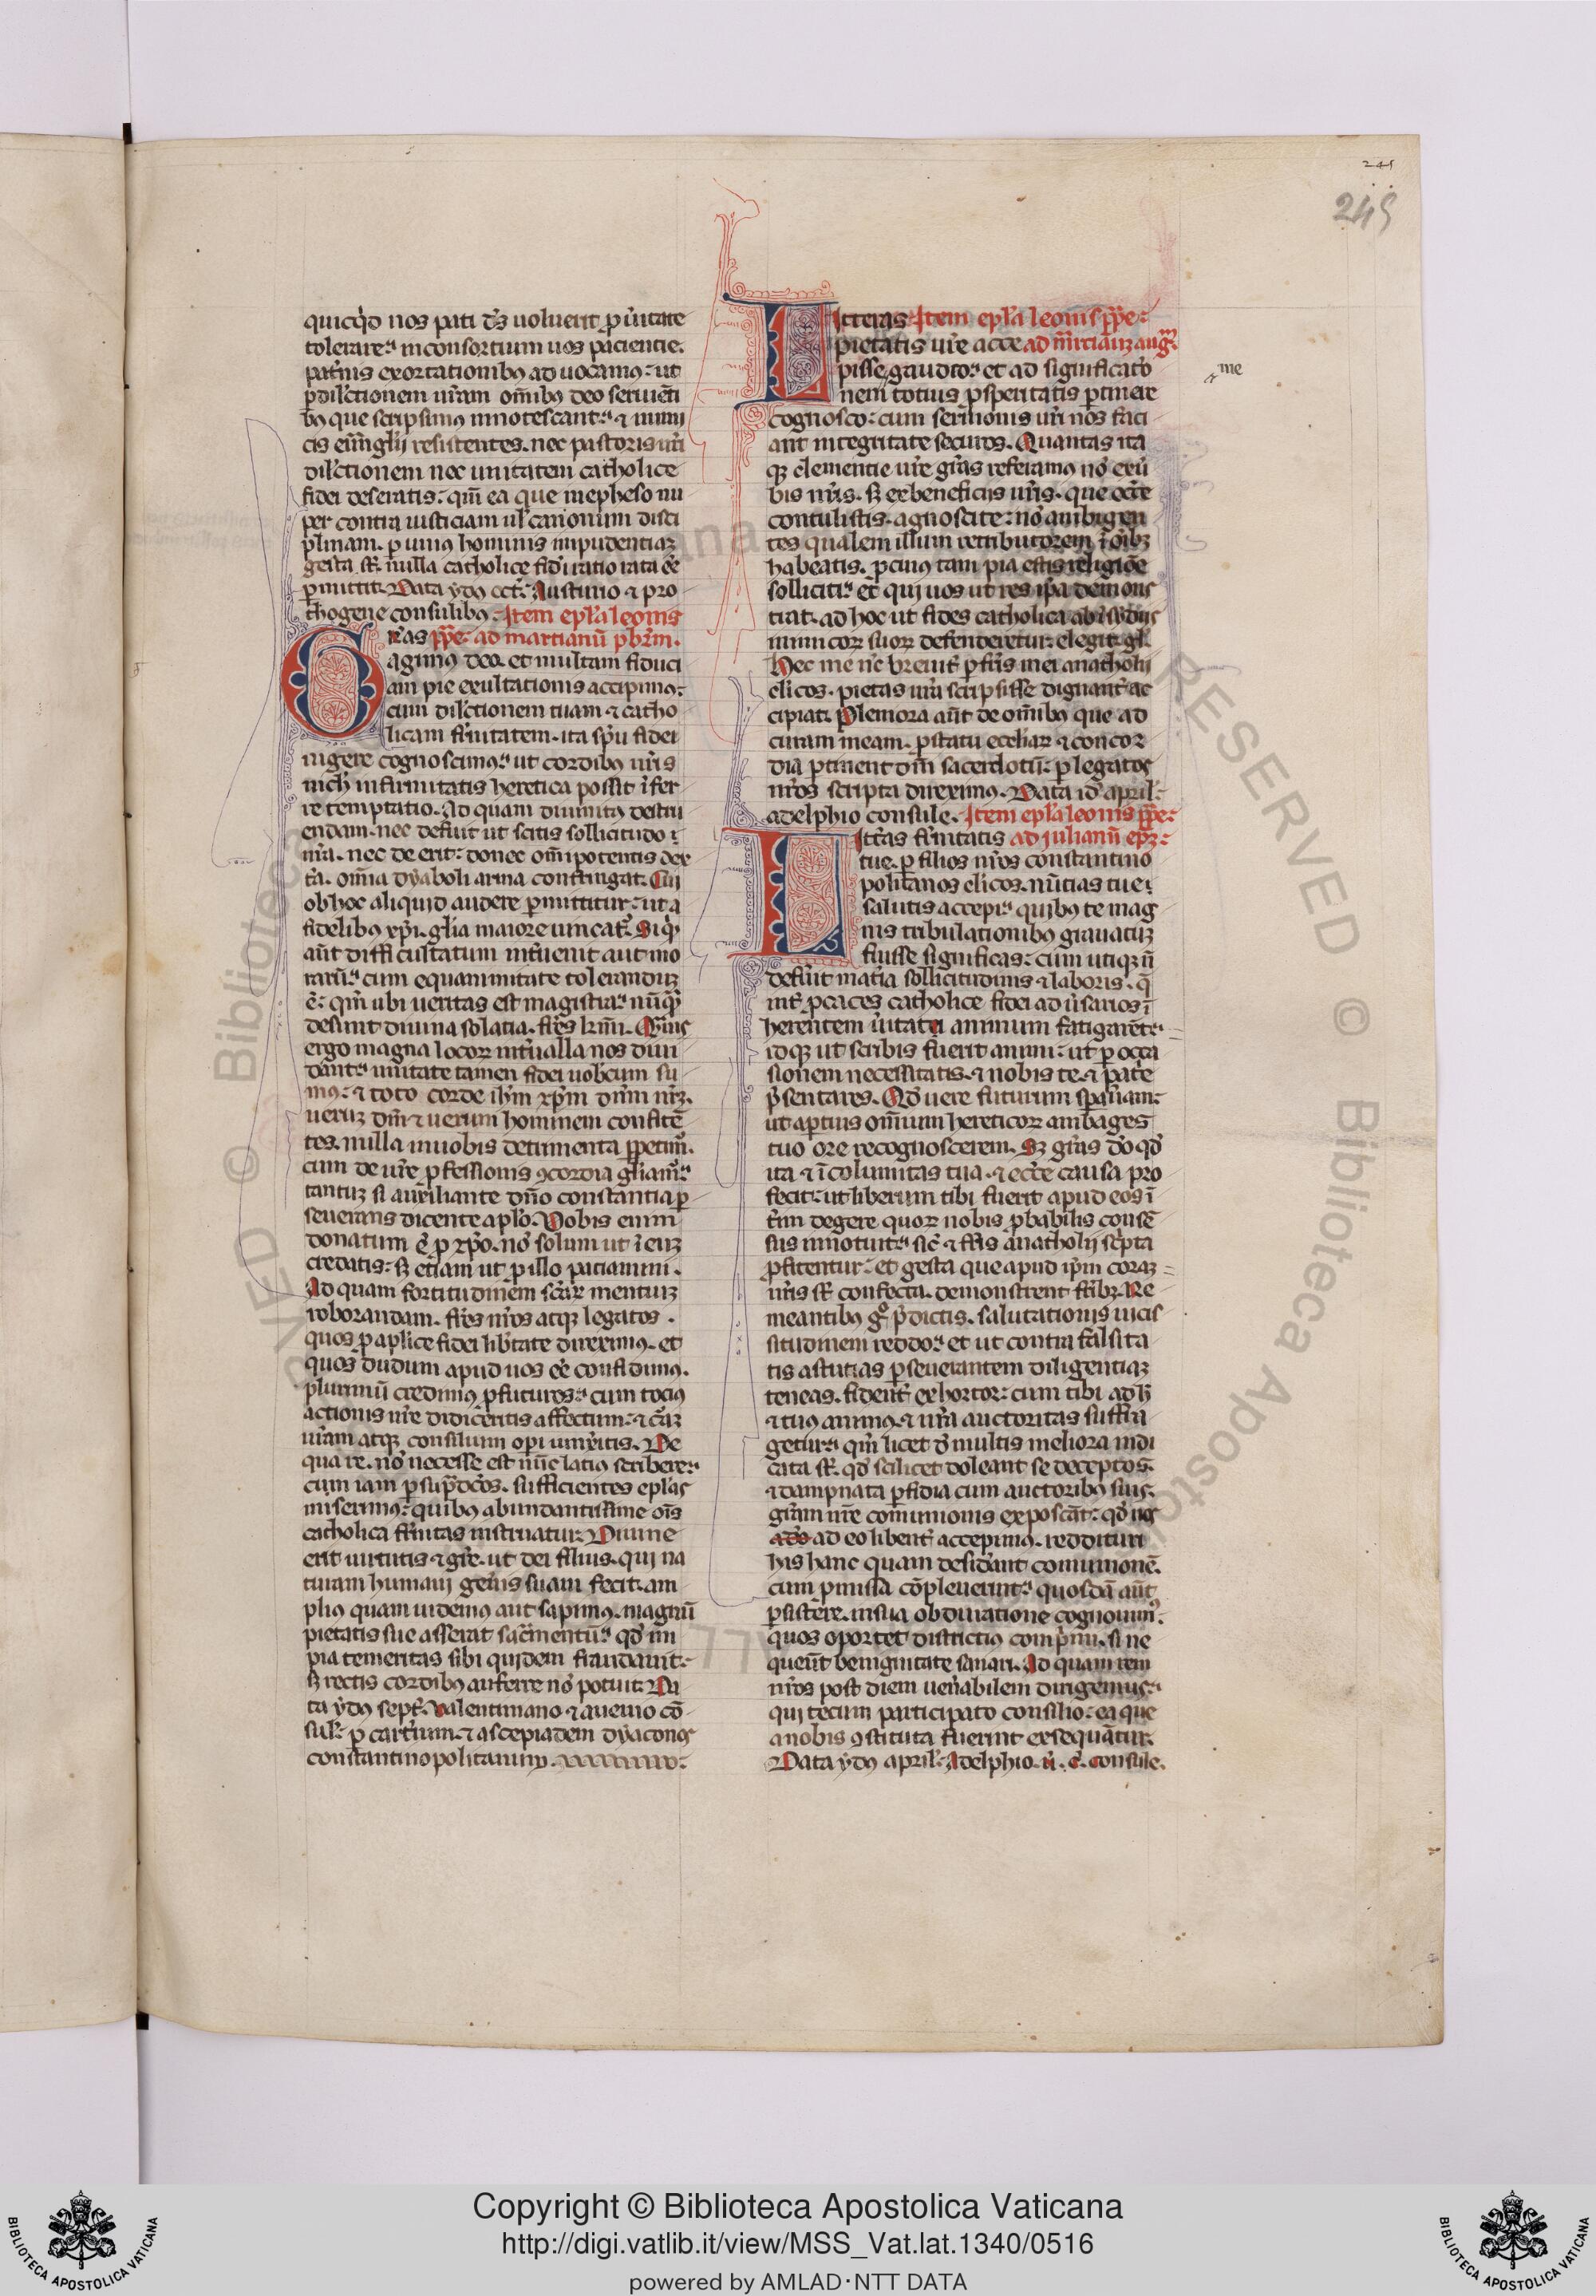 245
245
quicq̇d nos pati dꝰs uoluerit ꝓ ůitate
tolerare. in consortium uos pacientie.
pat̃nis exortationibꝰ ad uocamꝰ: ut
ꝑ dil̃ctionem ur̃am om̃ibꝰ deo seruiẽti
bꝰ que scripsimus innotescant. ⁊ inimi
cis euãglij resistentes. nec pastoris ur̃i
dil̃ctionem nec unitatem catholice
fidei deseratis: qm̃ ea que in epheso nu
per contra iusticiam ul̃ canonum disci
plinam. ꝑ unius hominis impudentiaꝫ
gesta st̃. nulla catholice fidei ratio rata ee̾
ꝑmittit. Data ydꝰ oct̃. Austurio ⁊ pro
thogene consulibꝰ. Item epl̃a leonis
Gr̃as pp̃e. ad martianũ pbr̃m.
agimꝰ deo. et multam fiduci
am pie exultationis accipimꝰ:
cum dil̃ctionem tuam ⁊ catho
licam fr̃nitatem. ita sp̃u fidei
uigere cognoscimꝰ. ut cordibꝰ ur̃is
nich̾ infirmitatis heretica possit ĩfer
re temptatio. Ad quam diuinitꝰ destru
endam. nec defuit ut scitis sollicitudo
nr̃a. nec de erit: donec om̃ipotentis dex
t̃a. om̃ia dyaboli arma confringat. Cui
ob hoc aliquid audere ꝑmittitur: ut a
fidelibꝰ xp̃i. gl̃ia maiore uincat̃. Si q̇
aũt difficultatum int̃uenit aut mo
rarũ. cum equanimitate tolerandũ
ẽ: qm̃ ubi ueritas est magistra. nũq̃
desunt diuina solatia. fr̃es kmĩ. Quãuis
ergo magna locoꝝ int̃ualla nos diui
dant. unitate tamen fidei uobiscum su
mꝰ: ⁊ toto corde ihm̃ xp̃m dñm nr̃ꝫ.
ueruꝫ dm̃ ⁊ uerum hominem confitẽ
tes. nulla in uobis detrimenta ꝑpetim̃.
cum de ur̃e ꝓfessionis ꝯcordia gl̃iam̃.
tantuꝫ si auxiliante dño constantia ꝑ
seuerans dicente apl̃o. Uobis enim
donatum ẽ ꝓ xp̃o. no̾ solum ut ĩ euꝫ
credatis: sꝫ etiam ut ꝓ illo patiamini.
Ad quam fortitudinem scãꝝ mentiuꝫ
roborandam. fr̃es nr̃os atqꝫ legatos.
quos ꝓ aplice fidei lib̃tate direximꝰ. et
quos dudum apud uos ee̾ confidimꝰ.
plurimũ credimus ꝓfuturos. cum tociꝰ
actionis nr̃e didiceritis affectum. ⁊ curã
ur̃am atqꝫ consilium oꝑi uniritis. De
qua re. no̾ necesse est nũc latiꝰ scribere.
cum iam ꝑ sup̃dc̃os. sufficientes epl̃as
miserimꝰ: quibꝰ abundantissime oĩs
catholica fr̃nitas instruatur. Diuine
erit uirtutis ⁊ gr̃e. ut dei filius. qui na
turam humani gen̾is suam fecit. am
pliꝰ quam uidemꝰ aut sapimꝰ. magnũ
pietatis sue asserat sac̃mentũ. qd̾ im
pia temeritas sibi quidem fraudauit.
sꝫ rectis cordibꝰ auferre no̾ potuit. Da
ta ydꝰ sept̃. Ualentiniano ⁊ auenio cõ
sul̃. ꝑ cart̾ium. ⁊ ascepiadem dyaconꝰ
constantinopolitanum.
Litteras Item epl̃a leonis pp̃e.
pietatis ur̃e acce ad mr̃cianꝫ aug̃.
pisse gaudeo. et ad significatio
nem totius ꝓsperitatis ꝑtinere
me
cognosco: cum sermonis ur̃i nos faci
ant integritate securos. Quantas ita
qꝫ clementie ur̃e gr̃as referamꝰ no̾ ex ũ
bis nr̃is. sꝫ ex beneficijs ur̃is. que ecc̃e
contulistis. agnoscite: no̾ ambigen
tes qualem illum retributorem ĩ oĩbꝫ
habeatis. ꝓ cuiꝰ tam pia estis religiõe
solliciti. et̾ qui uos ut res ip̃a demons
trat. ad hoc ut fides catholica ab ĩsidiis
inimicoꝝ suoꝝ defenderetur. elegit. gl̃.
Hec me nc̃ breuit̃ ꝑ fr̃is mei anatholij
cl̃icos. pietas ur̃a scripsisse dignant̃ ac
cipiat. Pleniora aũt de om̃ibꝰ que ad
curam meam. ꝓ statu eccl̃iaꝝ ⁊ concor
dia ꝑtinent dm̃ sacerdotũ. ꝑ legatos
nr̃os scripta direximꝰ. Data id̾ april̃.
adelphio consule. Item epl̃a leonis pp̃e.
Litt̃as fr̃nitatis ad julianũ ep̃ꝫ.
tue. ꝑ filios nr̃os constantino
politanos cl̃icos. nũtias tue
salutis accepi. quibꝰ te mag
nis tribulationibꝰ grauatuꝫ
fuisse significas: cum utiqꝫ ñ
defũit mat̃ia sollicitudinis ⁊ laboris. q̃
int̃ ꝓcaces catholice fidei aduersarios ĩ
herentem ůitati animum fatigarẽt.
idqꝫ ut scribis fuerit animi: ut ꝑ occa
sionem necessitatis. ⁊ nobis te. ⁊ pat̃e
p̃sentares. Qd̾ uere futurum sꝑauiam:
ut aptius omnium hereticoꝝ ambages
tuo ore recognoscerem. Sꝫ gr̃as do̾ qd̾
ita ⁊ ĩcolumitas tua. ⁊ ecc̃e causa pro
fecit: ut liberum tibi fuerit apud eos ĩ
t̃im degere quoꝝ nobis ꝓbabilis consẽ
sus innotuit. sic̃ ⁊ fr̃is anatholij sc̃pta
ꝓfitentur: et gesta que apud ip̃m coraꝫ
nr̃is st̃ confecta. demonstrent fr̃ibꝫ. Re
meantibꝰ gͦ p̃dictis. salutationis uicis
situdinem reddo. et ut contra falsita
tis astutias ꝑseuerantem diligentiaꝫ
teneas. fident̃ exhortor: cum tibi adh̃
⁊ tuꝰ animꝰ. ⁊ nr̃a auctoritas suffra
getur. qm̃ licet d̾ multis meliora indi
cata st̃. qd̾ scilicet doleant se deceptos.
⁊ dampnata ꝑfidia cum auctoribꝰ suis.
gr̃am nr̃e com̃unionis exposcãt: qd̾ nos
ad eo libent̃ accepimꝰ. reddituri
his hanc quam desid̾ant comunionẽ.
cum ꝓmissa cõpleuerint. quosdã aũt
ꝑsistere. in sua obduratione cognouimꝰ.
quos oportet districtiꝰ comp̃mi. si ne
queũt benignitate sanari. Ad quam rem
nr̃os post diem uen̾abilem dirigemus.
qui tecum participato consilio: ea que
a nobis ꝯstituta fuerint exsequãtur.
Data ydꝰ april̃. Adelphio. u̾. c̾. consule.
Copyright © Biblioteca Apostolica Vaticana
http://digi.vatlib.it/view/MSS_Vat.lat.1340/0516
powered by AMLAD·NTT DATA
BIBLIOTECA APOSTOLICA VATICANA
BIBLIOTECA APOSTOLICA VATICANA